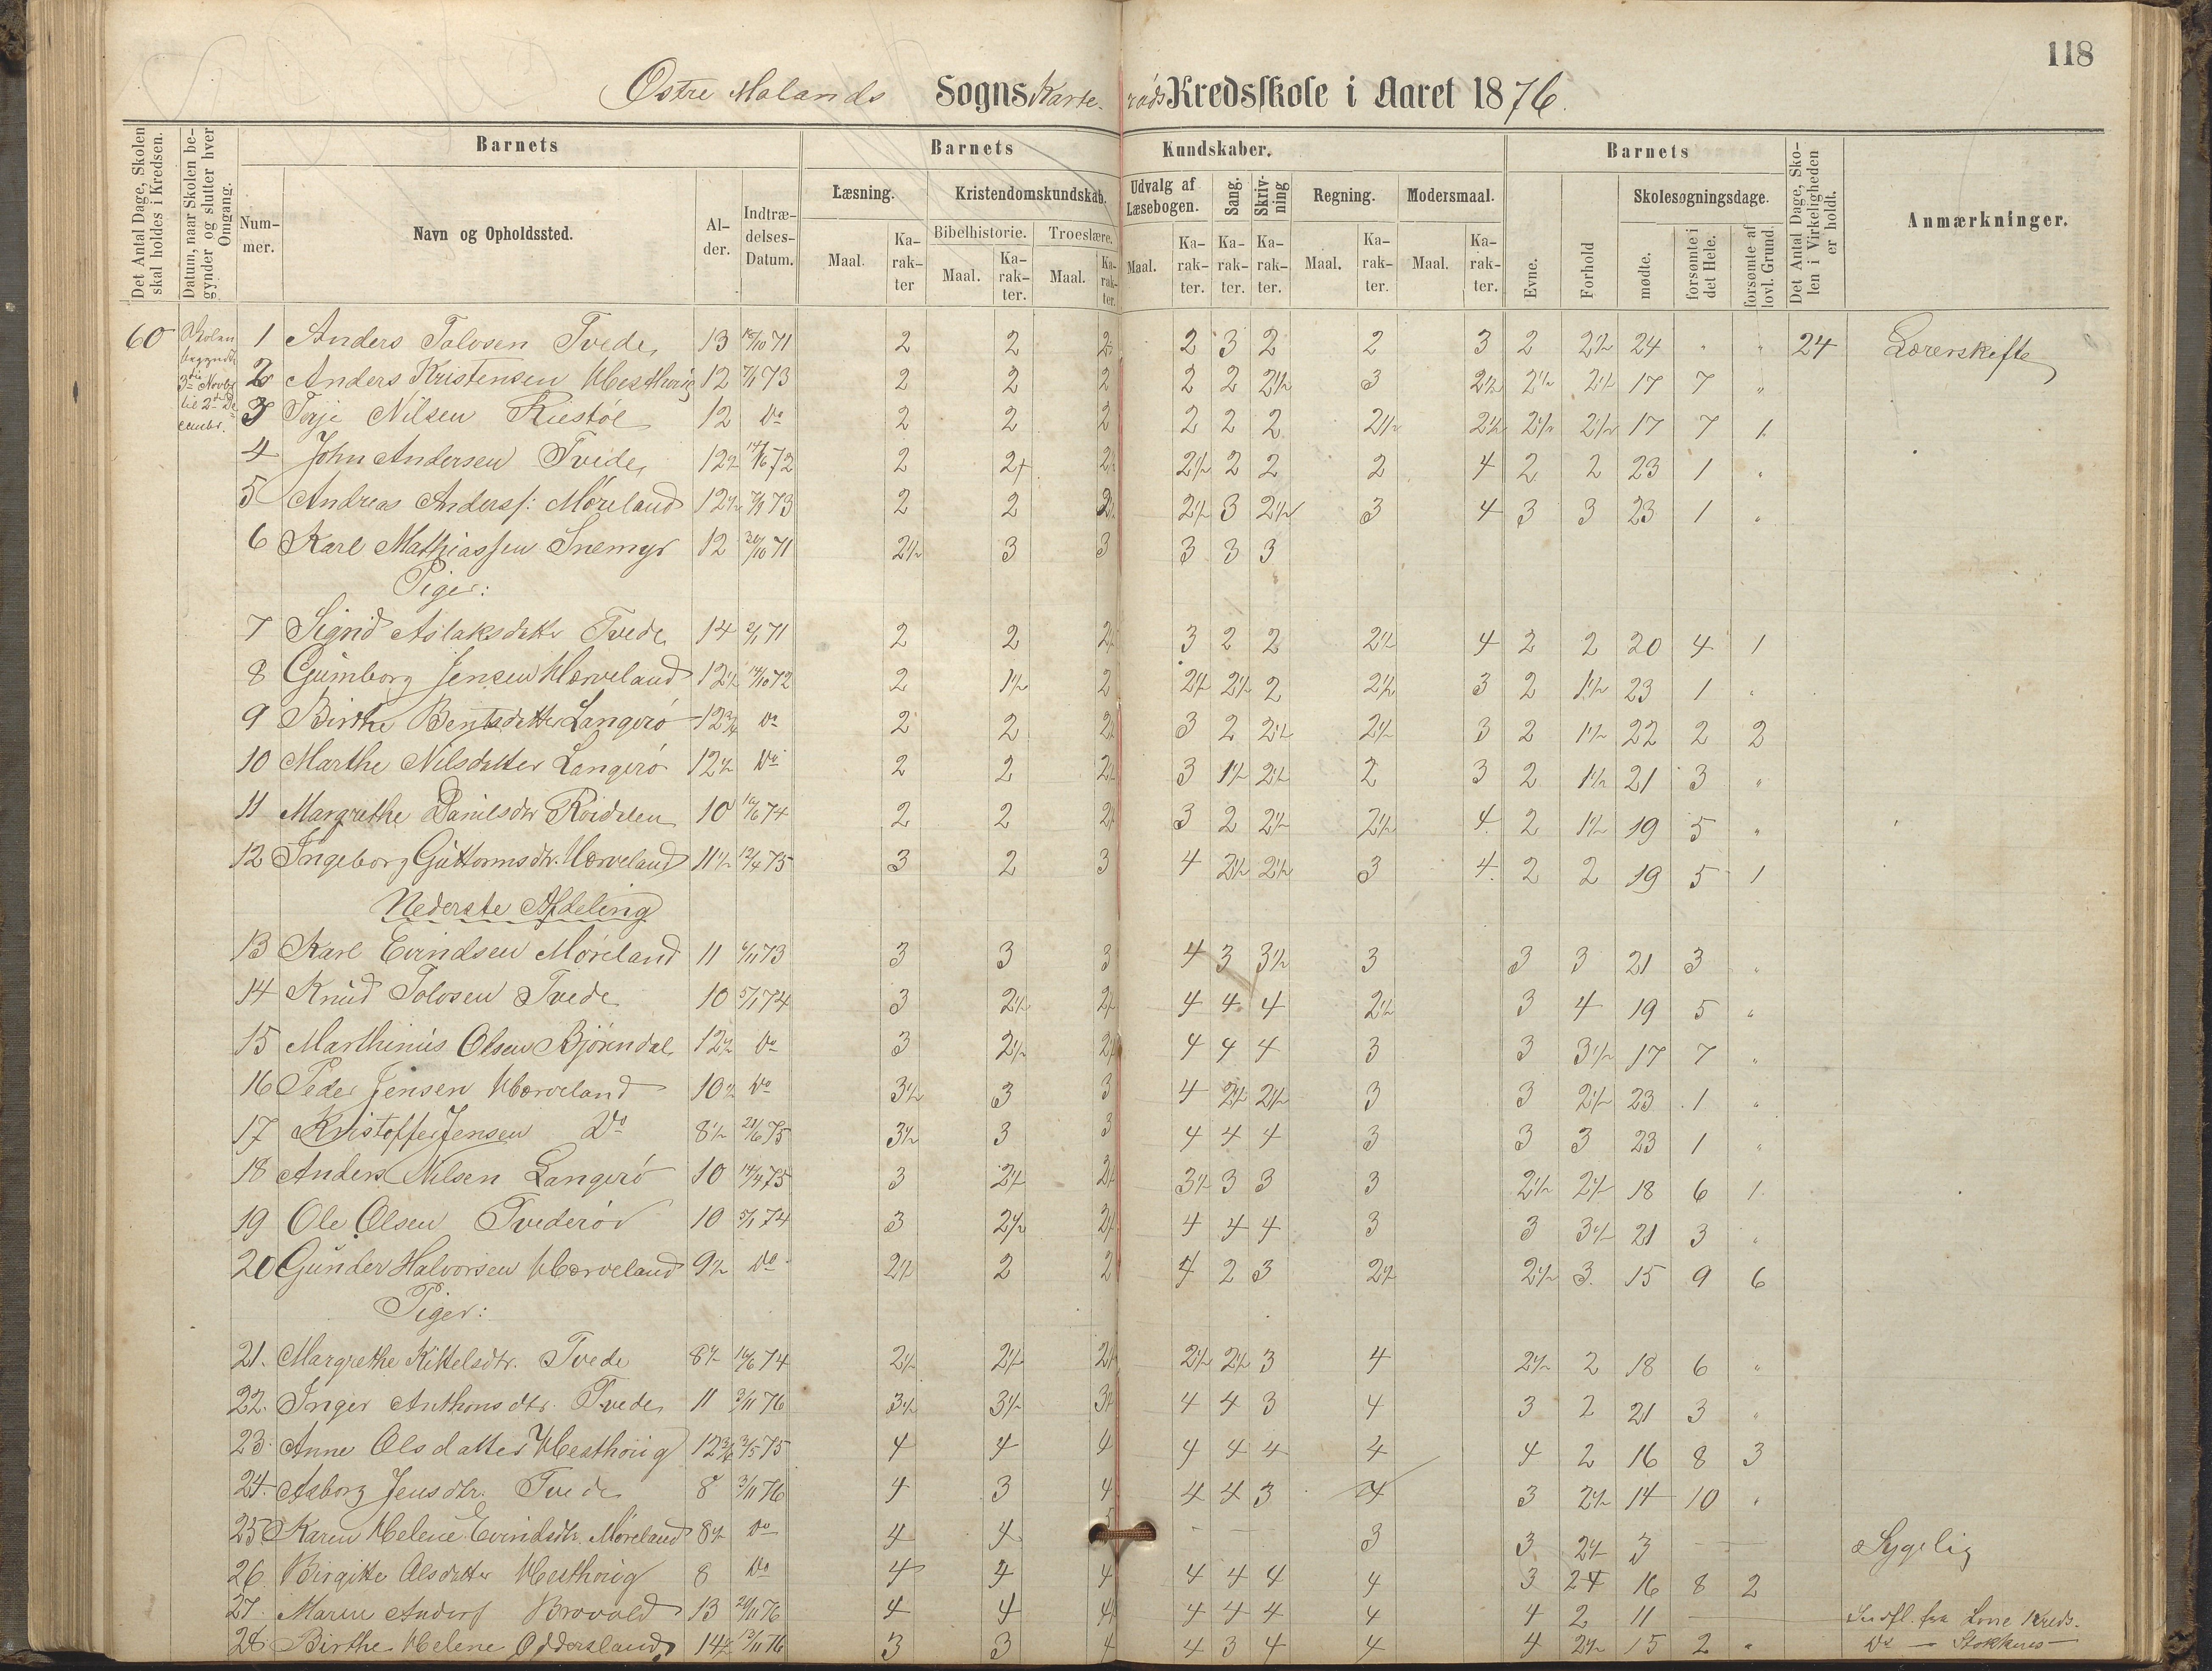 118
Østre Molands Sogns Karterøds Kredsskole i Aaret 1876.
Det Antal Dage, Skolen skal holdes i Kredsen.
Datum, naar Skolen begynder og slutter hver Omgang.
Barnets
Barnets Kundskaber.
Barnets
Det Antal Dage, Skolen i Virkeligheden er holdt.
Anmærkninger.
Nummer.
Navn og Opholdssted.
Alder.
Indtrædelses-Datum.
Læsning.
Kristendomskundskab.
Udvalg af Læsebogen.
Sang.
Skrivning
Regning.
Modersmaal.
Evne.
Forhold
Skolesøgningsdage.
Bibelhistorie.
Troeslære.
Maal. Karakter
Maal. Karakter.
Maal. Karakter.
Maal. Karakter.
Karakter.
Karakter.
Maal. Karakter.
Maal. Karakter.
mødte.
forsømte i det Hele.
forsømte af lovl. Grund.
60 Skolen begyndte 3die Novbr til 2den December.
1 Anders Talosen Tvede 13 71 2 2 2 3 2 2 3 2 2½ 24 " " 24 Lærerskifte
2 Anders Kristensen Hesthoug 12 7/1 73 2 2 2 2 2 2½ 3 2½ 2½ 2½ 17 7 "
3 Terje Nilsen Riestøl 12 Do 2 2 2 2 2 2 2½ 2½ 2½ 2½ 17 7 1
4 John Andersen Tvede 12½ 72 2 2+ 2½ 2 2 2 4 2 2 23 1 "
5 Andreas Anders: Møreland 12½ 7/1 73 2 2 2½ 3 2½ 3 4 3 3 23 1 "
6 Karl Mathiassen Snemyr 12 71 2½ 3 3 3 3 3
Piger:
7 Sigrid Aslaksdatter Tvede 14 2/1 71 2 2 3 2 2 2½ 4 2 2 20 4 1
8 Gumborg Jensen Hørveland 12½ 14/10 72 2 1½ 2 2½ 2½ 2 2½ 3 2 1½ 23 1 "
9 Birthe Bentsdatter Langerø 12¾ Do 2 2 3 2 2½ 2½ 3 2 1½ 22 2 2
10 Marthe Nilsdatter Langerø 12½ Do 2 2 3 1½ 2½ 2 3 2 1½ 21 3 "
11 Margrethe Danielsdtr Roidalen 10 74 2 2 3 2 2½ 2½ 4 2 1½ 19 5 "
12 Ingeborg Guttormsdtr. Hørveland 11½ 12/4 75 3 2 3 4 2½ 2½ 3 4 2 2 19 5 1
Nederste Afdeling
13 Karl Evindsen Møreland 11 73 3 3 3 4 3 3½ 3 3 3 21 3 "
14 Knud Tolosen Tvede 10 5/1 74 3 2½ 4 4 4 2½ 3 4 19 5 "
15 Marthinius Olsen Bjørndal 12½ Do 3 2½ 4 4 4 3 3 3½ 17 7 "
16 Peder Jensen Hørveland 10½ Do 3½ 3 3 4 2½ 2½ 3 3 2½ 23 1 "
17 Kristoffer Jensen Do 8½ 75 3½ 3 3 4 4 4 3 3 3 23 1 "
18 Anders Nilsen Langerø 10 14/4 75 3 2½ 3½ 3 3 3 2½ 2½ 18 6 1
19 Ole Olsen Tvederød 10 5/1 74 3 2½ 4 4 4 3 3 3½ 21 3 "
20 Gunder Halvorsen Hørveland 9½ Do 2½ 2 2 4 2 3 2½ 2½ 3 15 9 6
Piger:
21. Margrethe Kittelsdtr. Tvede 8½ 74 2½ 2½ 2½ 2½ 3 4 2½ 2 18 6 "
22. Inger Anthonsdtr. Tvede 11 3/11 76 3½ 3½ 4 4 3 4 3 2 21 3 "
23. Anne Olsdatter Hesthoug 12¾ 3/5 75 4 4 4 4 4 4 4 4 2 16 8 3
24. Asborg Jensdtr. Tvede 8 3/11 76 4 3 4 4 4 3 4 3 2½ 14 10 "
25. Karen Helene Evindsdtr. Møreland 8½ Do 4 4 5 3 3 2½ 3 Sygelig
26. Birgitte Olsdatter Hesthoug 8 Do 4 4 4 4 4 4 4 3 16 8 2
27. Maren Anders Brovold 13 76 4 4 4 4 4 4 4 2 11 Indfl. fra Kreds.
28. Birthe Helene Oddersland 14½ 13/11 76 3 3 4 4 3 4 4 4 2½ 15 2 " Do — Stokkens —